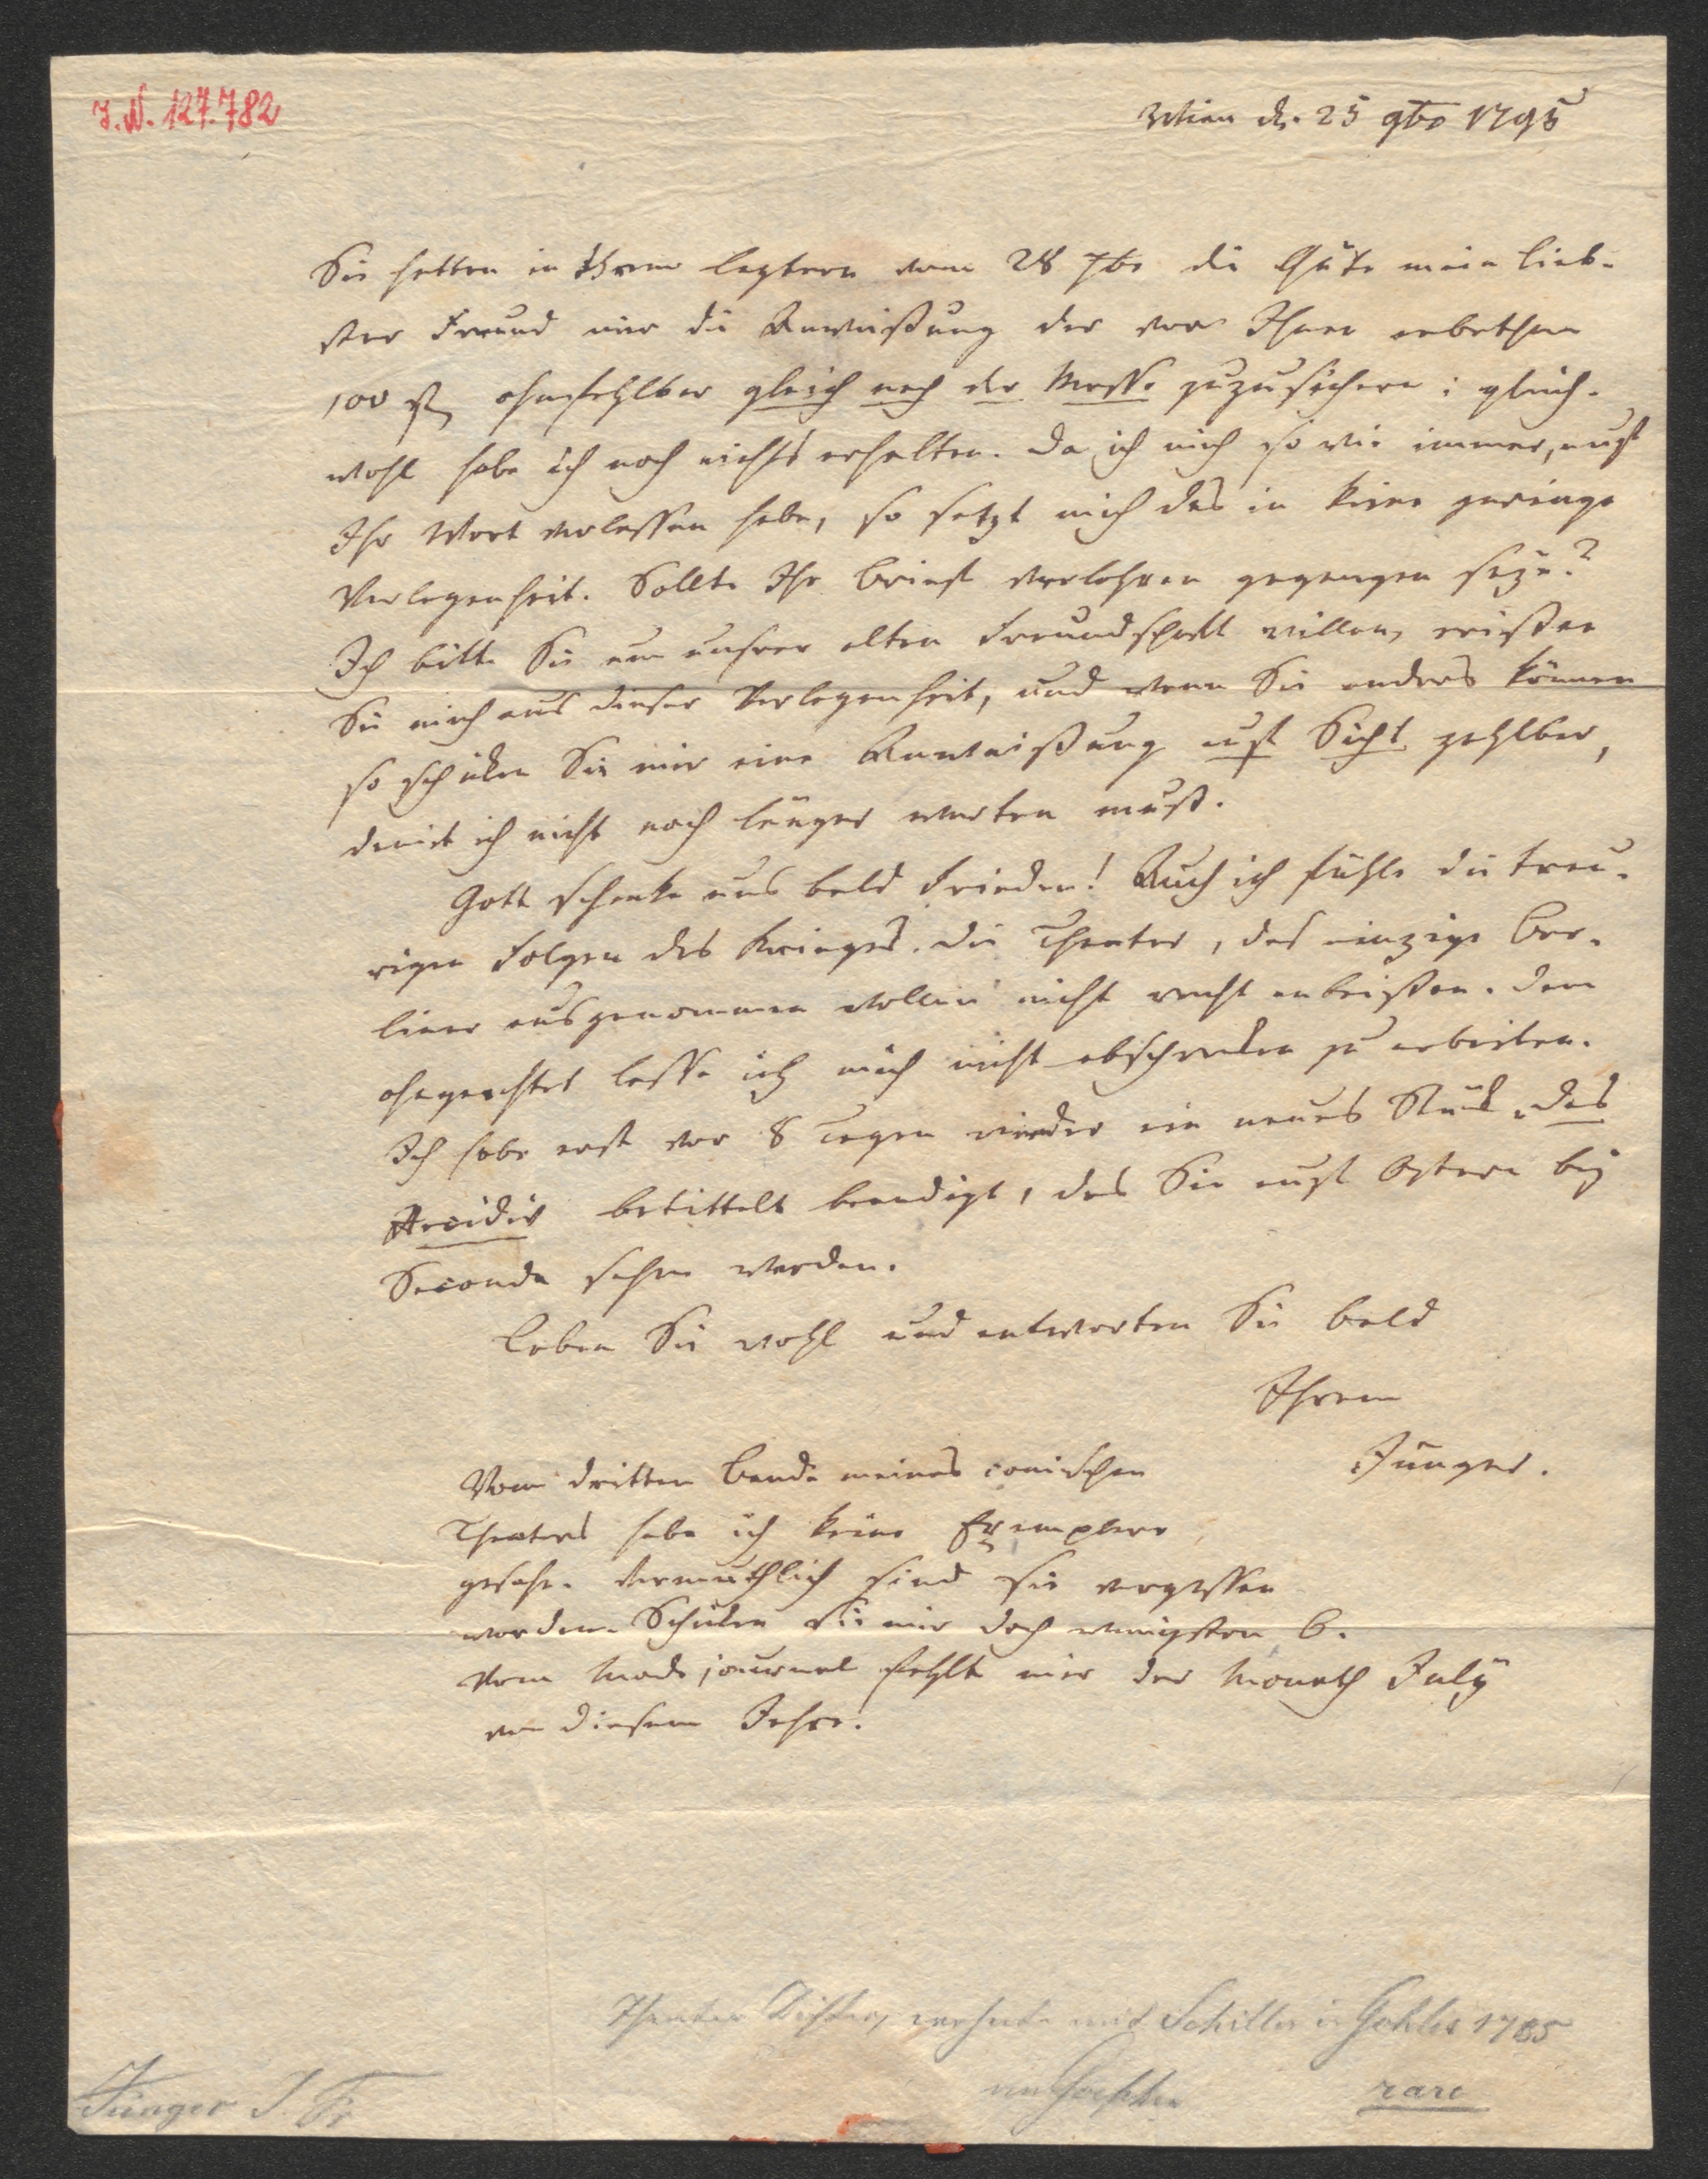 J.N. 127.782
Wien d. 25 9br 1795
Sie hatten in Ihrem leztern vom 28 7br die Güte mein lieb-
ster Freund mir die Anweißung der von Ihnen erbethnen
100 fl ohnfehlbar gleich nach der Messe zuzusichern; gleich-
wohl habe ich noch nichts erhalten. Da ich mich so wie immer, auf
Ihr Wort verlassen habe, so setzt mich das in keine geringe
Verlegenheit. Sollte Ihr Brief verlohren gegangen seyn?
Ich bitte Sie um unsrer alten Freundschaft willen, reißen
Sie mich aus dieser Verlegenheit, und wenn Sie anders können
so schicken Sie mir eine Anweißung auf Sicht zahlbar,
damit ich nicht noch länger warten muß.
Gott schenke uns bald Frieden! Auch ich fühle die trau-
rigen Folgen des Krieges. Die Theater, das einzige Ber-
liner ausgenommen wollen nicht recht anbeißen. Dem
ohngeachtet lasse ich mich nicht abschrecken zu arbeiten.
Ich habe erst vor 8 Tagen wieder ein neues Stück, das
Recidiv betittelt beendigt, das Sie auf Ostern bey
Seconda sehen werden.
Leben Sie wohl und antworten Sie bald
Ihrem
Jünger.
Vom dritten Bande meines comischen
Theaters habe ich keine Exemplare
gesehn. Vermuthlich sind sie vergessen
worden. Schicken Sie mir doch wenigsten 6.
Vom Mode journal fehlt mir der Monath July
von diesem Jahre.
Theater Dichter, wohnte mit Schiller in Gohlis 1785
an Goeschen
rare
Jünger J. Fr.